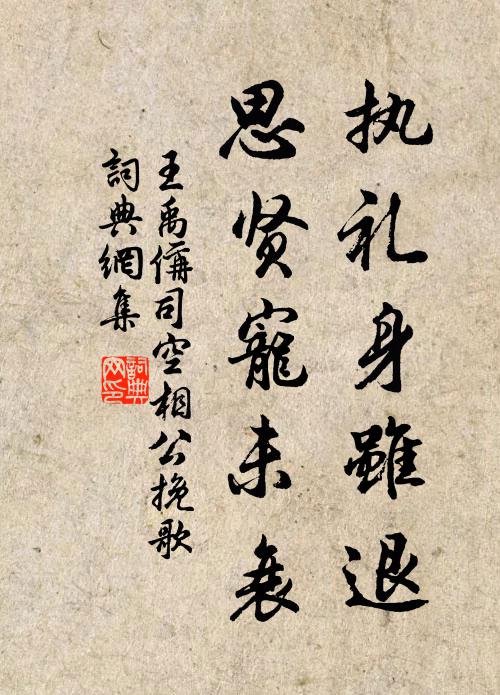 执礼身雖退
思贤寵未衰
王禹偁司空相公挽歌
詞典網集
詞典
网印